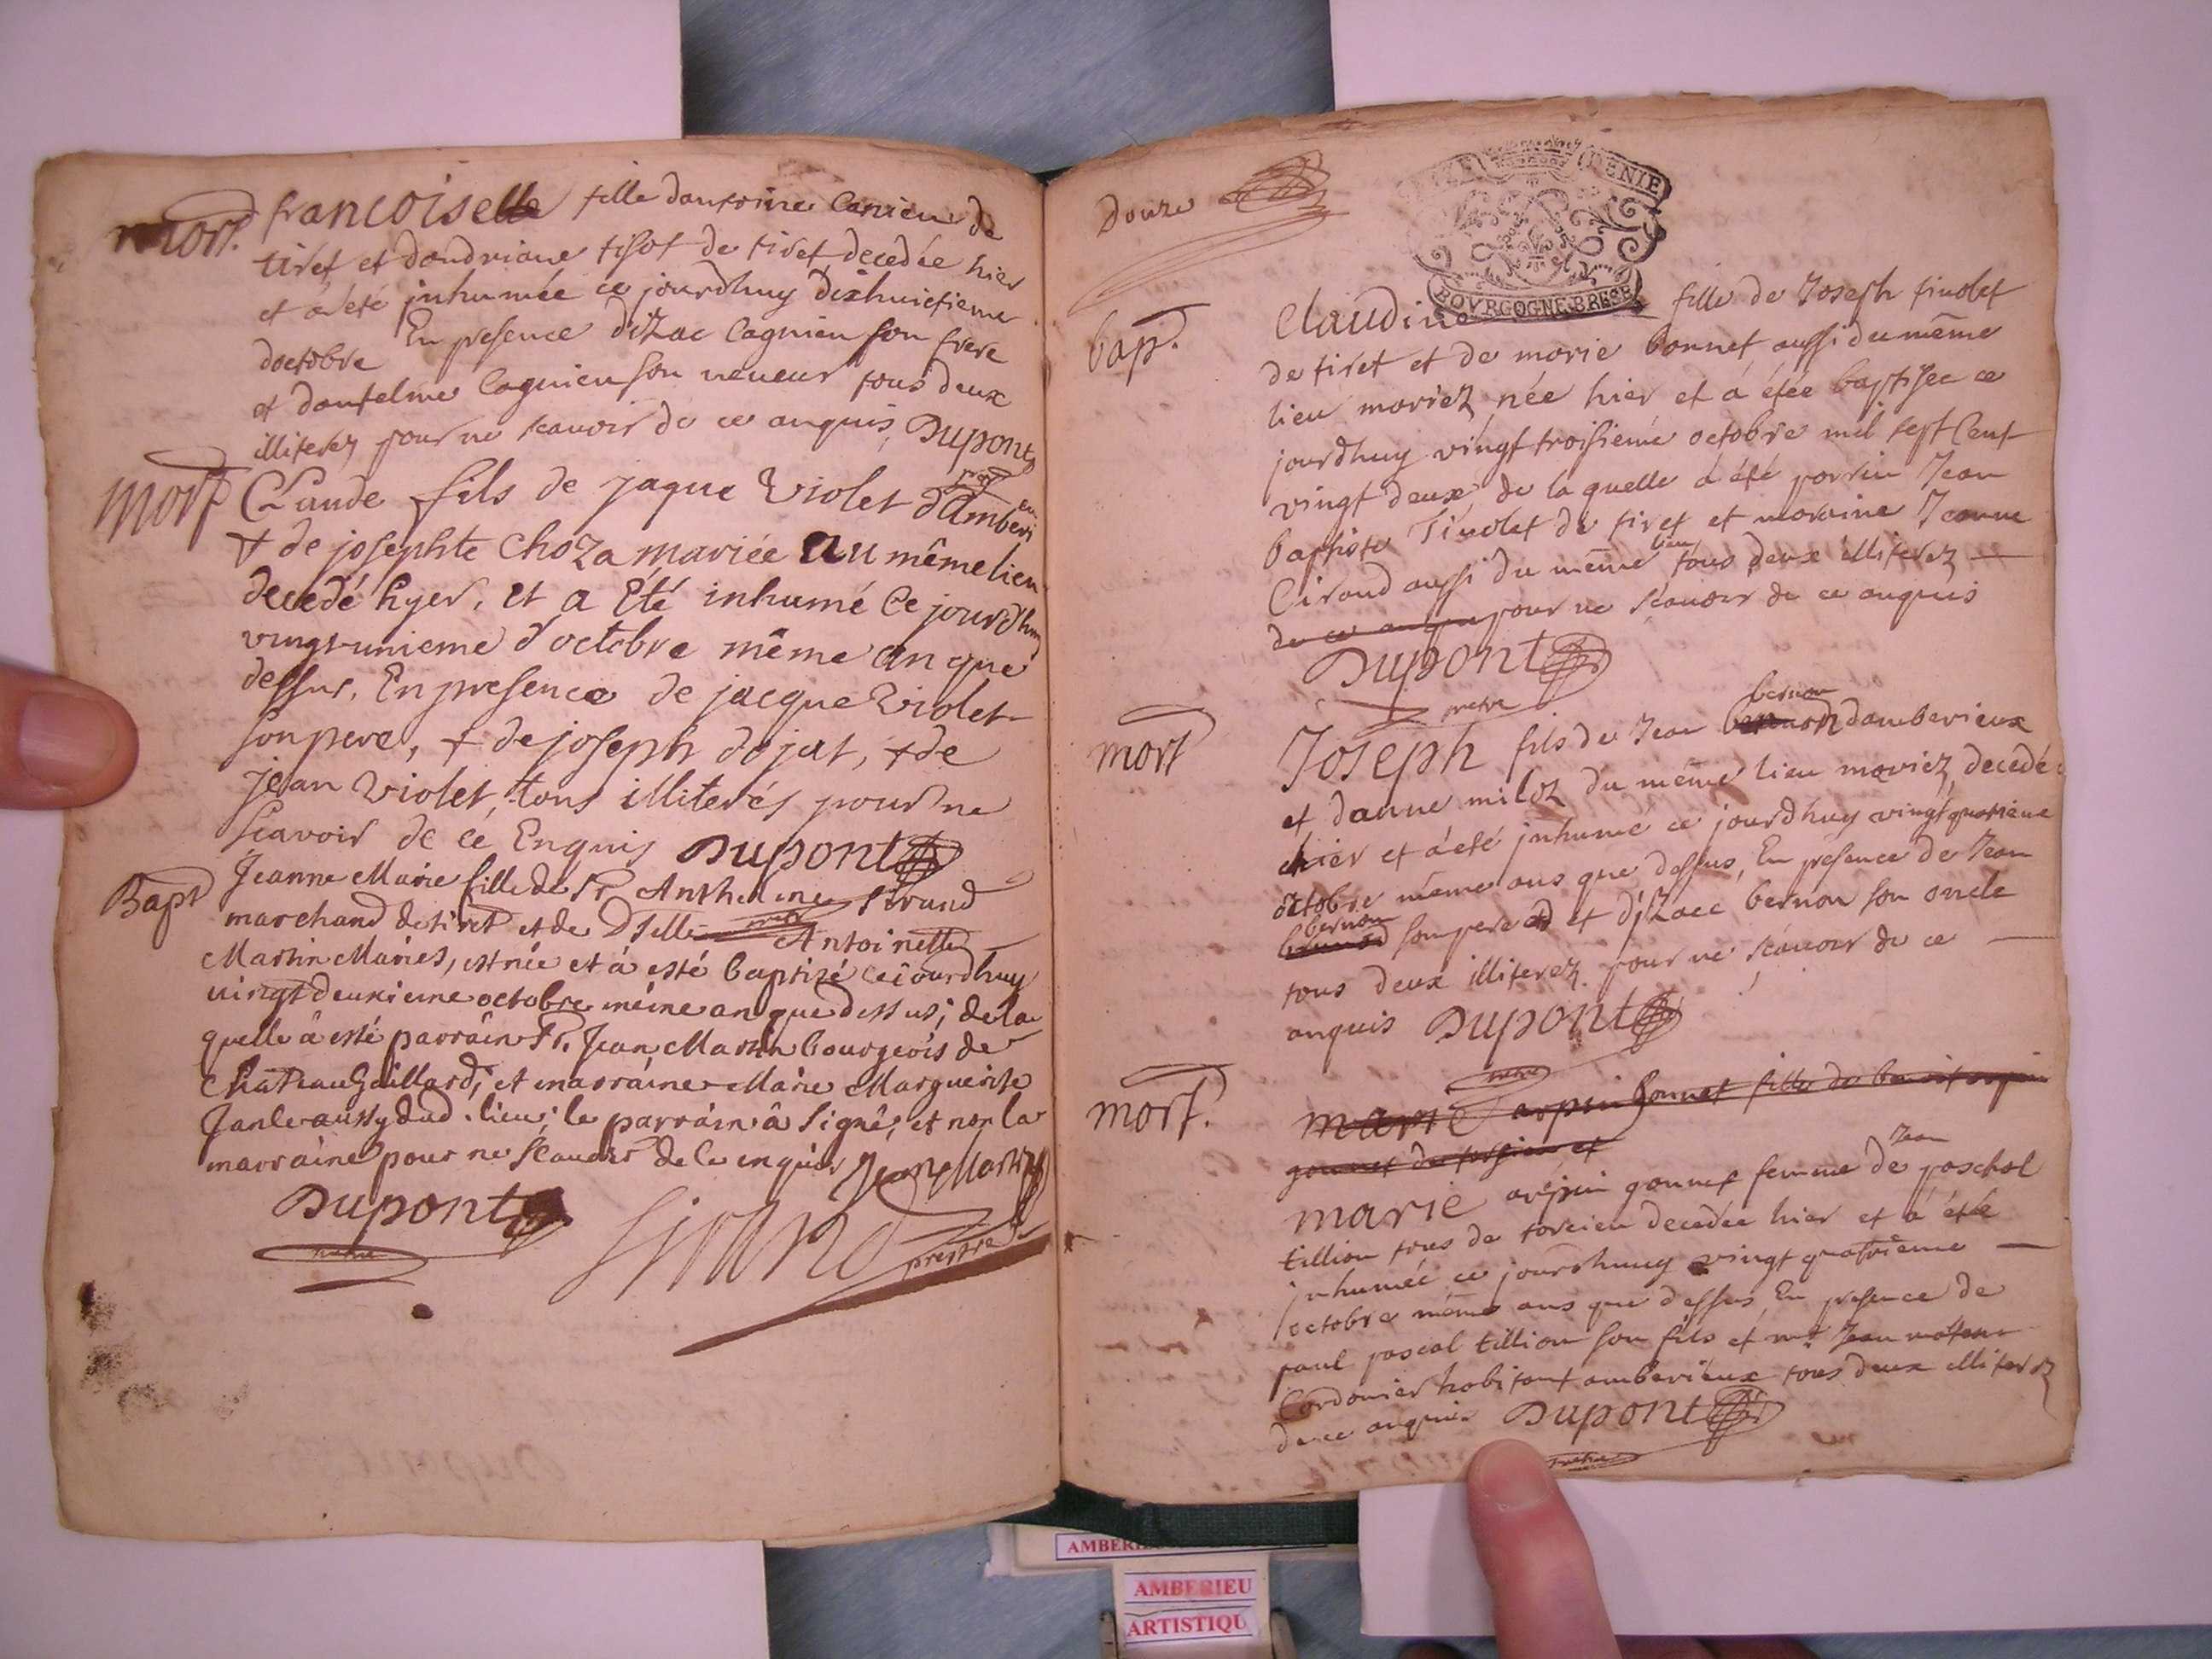 mort. francoise fille dantoine Canieu de
tiret et dandriane tisot de tiret decedée hier
et a été inhumée ce jourdhuy dixhuictieme
doctobre En presence dizac Cagnieu son frere
et dantelme Cagnieu son neueur tous deux
illiterez pour ne scauoir de ce anquis, Dupont
mort Claude fils de jaque Violet d'Amberieu
& de josephte Choza mariée au même lieu
decedé hyer, et a été inhumé ce jourdhuy
vingt-unieme d'octobre même an que
dessus, En presence de jacque Violet
son pere, & de joseph dojat, & de
jean Violet, tous illiterés pour ne
scavoir de ce Enquis Dupont
Bapt Jeanne Marie fille de Sr Anthelme Sirand
marchand de tiret et de Dselle Antoinette
Martin Mariés, est née et à esté baptizé ce iourdhuy
uingt deuxieme octobre méme an que dessus; de la
quelle â esté parrain Sr. Jean Martin bourgeois de
Chateau Gaillard; et marraine Marie Marguerite
aussy dud. lieu; le parrain â signé, et non la
marraine pour ne scauoir de ce enquis Jean Martin
Dupont Sirand
pretre prestre
Douze
DENIE
BOVRGOGNE BRESSE
bap. Claudine fille de Joseph tinolet
de tiret et de marie bonnet aussi du même
lieu mariez née hier et à étée baptisee ce
jourdhuy vingt troisieme octobre mil sept Cent
vingt deux, de la quelle à été parrin Jean
baptiste Tinolet de tiret et maraine Jeanne
Cirand aussi du même lieu, tous deux illiterez
de ce anquis pour ne scauoir de ce anquis
Dupont
pretre
mort Joseph fils de Jean bernon damberieux
et danne miloz du même lieu mariez, decedé
hier et à été inhumé ce jourdhuy vingt quatrieme
octobre même ans que dessus, En presence de Jean
bernon son pere et dizacc bernon son oncle
tous deux illiterez pour ne scauoir de ce
anquis Dupont
pretre
mort. marie arpin gonnet fille de benoit arpin
gonnet de torcieu et
marie arpin gonnet femme de Jean paschal
tillion tous de torcieu decedee hier et à été
inhumée ce jourdhuy vingt quatrieme
octobre même ans que dessus, En presence de
paul pascal tillion son fils et mr. Jean
Cordonier habitant amberieux tous deux illiterez
de ce anquis Dupont
pretre
AMBERIEU
ARTISTIQU